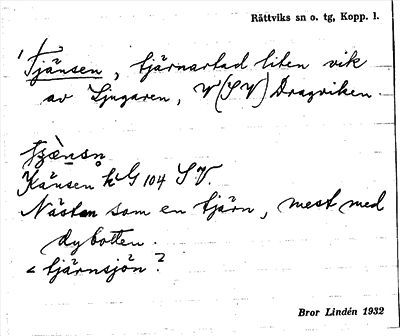 Rättviks sn o. tg, Kopp. l.
Tjänsen, tjärnartad liten vik
av Ljugaren, V (SV) Dragviken.
Känsen kG 104 SV.
Nästan som en tjärn, mest med
dybotten.
< tjärnsjön?
Bror Lindén 1932